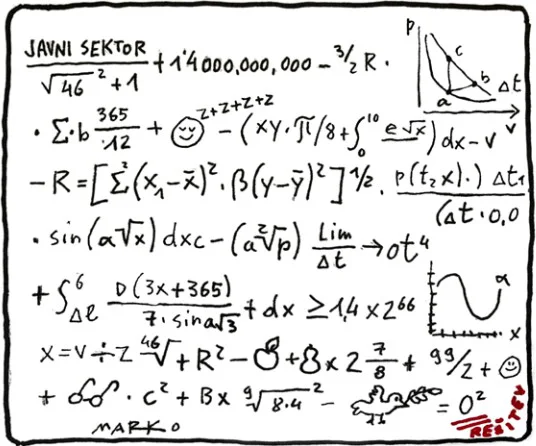 JAVNI SEKTOR / √46² + 1 + 1'4000.000,000 - 3/2 R ·
P c b a Δt v
· Σ·b 365/12 + ☺ z+z+z+z - (xy·π/8 + ∫₀¹⁰ e√x) dx - v
- R = [Σ(x₁-x̄)²·β(y-ȳ)²]½ · p(t₂x)·) Δt₁
(Δt·0,0
· sin(α√x) dxc - (a²√p) Lim/Δt → ot⁴
+ ∫ 6 Δl D(3x+365) / 7·sinα√3 + dx ≥ 1,4 x 2⁶⁶
α x
x = v ÷ z ⁴⁶√ + R² - + 8 x 2 7/8 + 99/2 + ☺
+ · c² + Bx ⁹√8·4² - = 0²
REŠITEV
MARKO